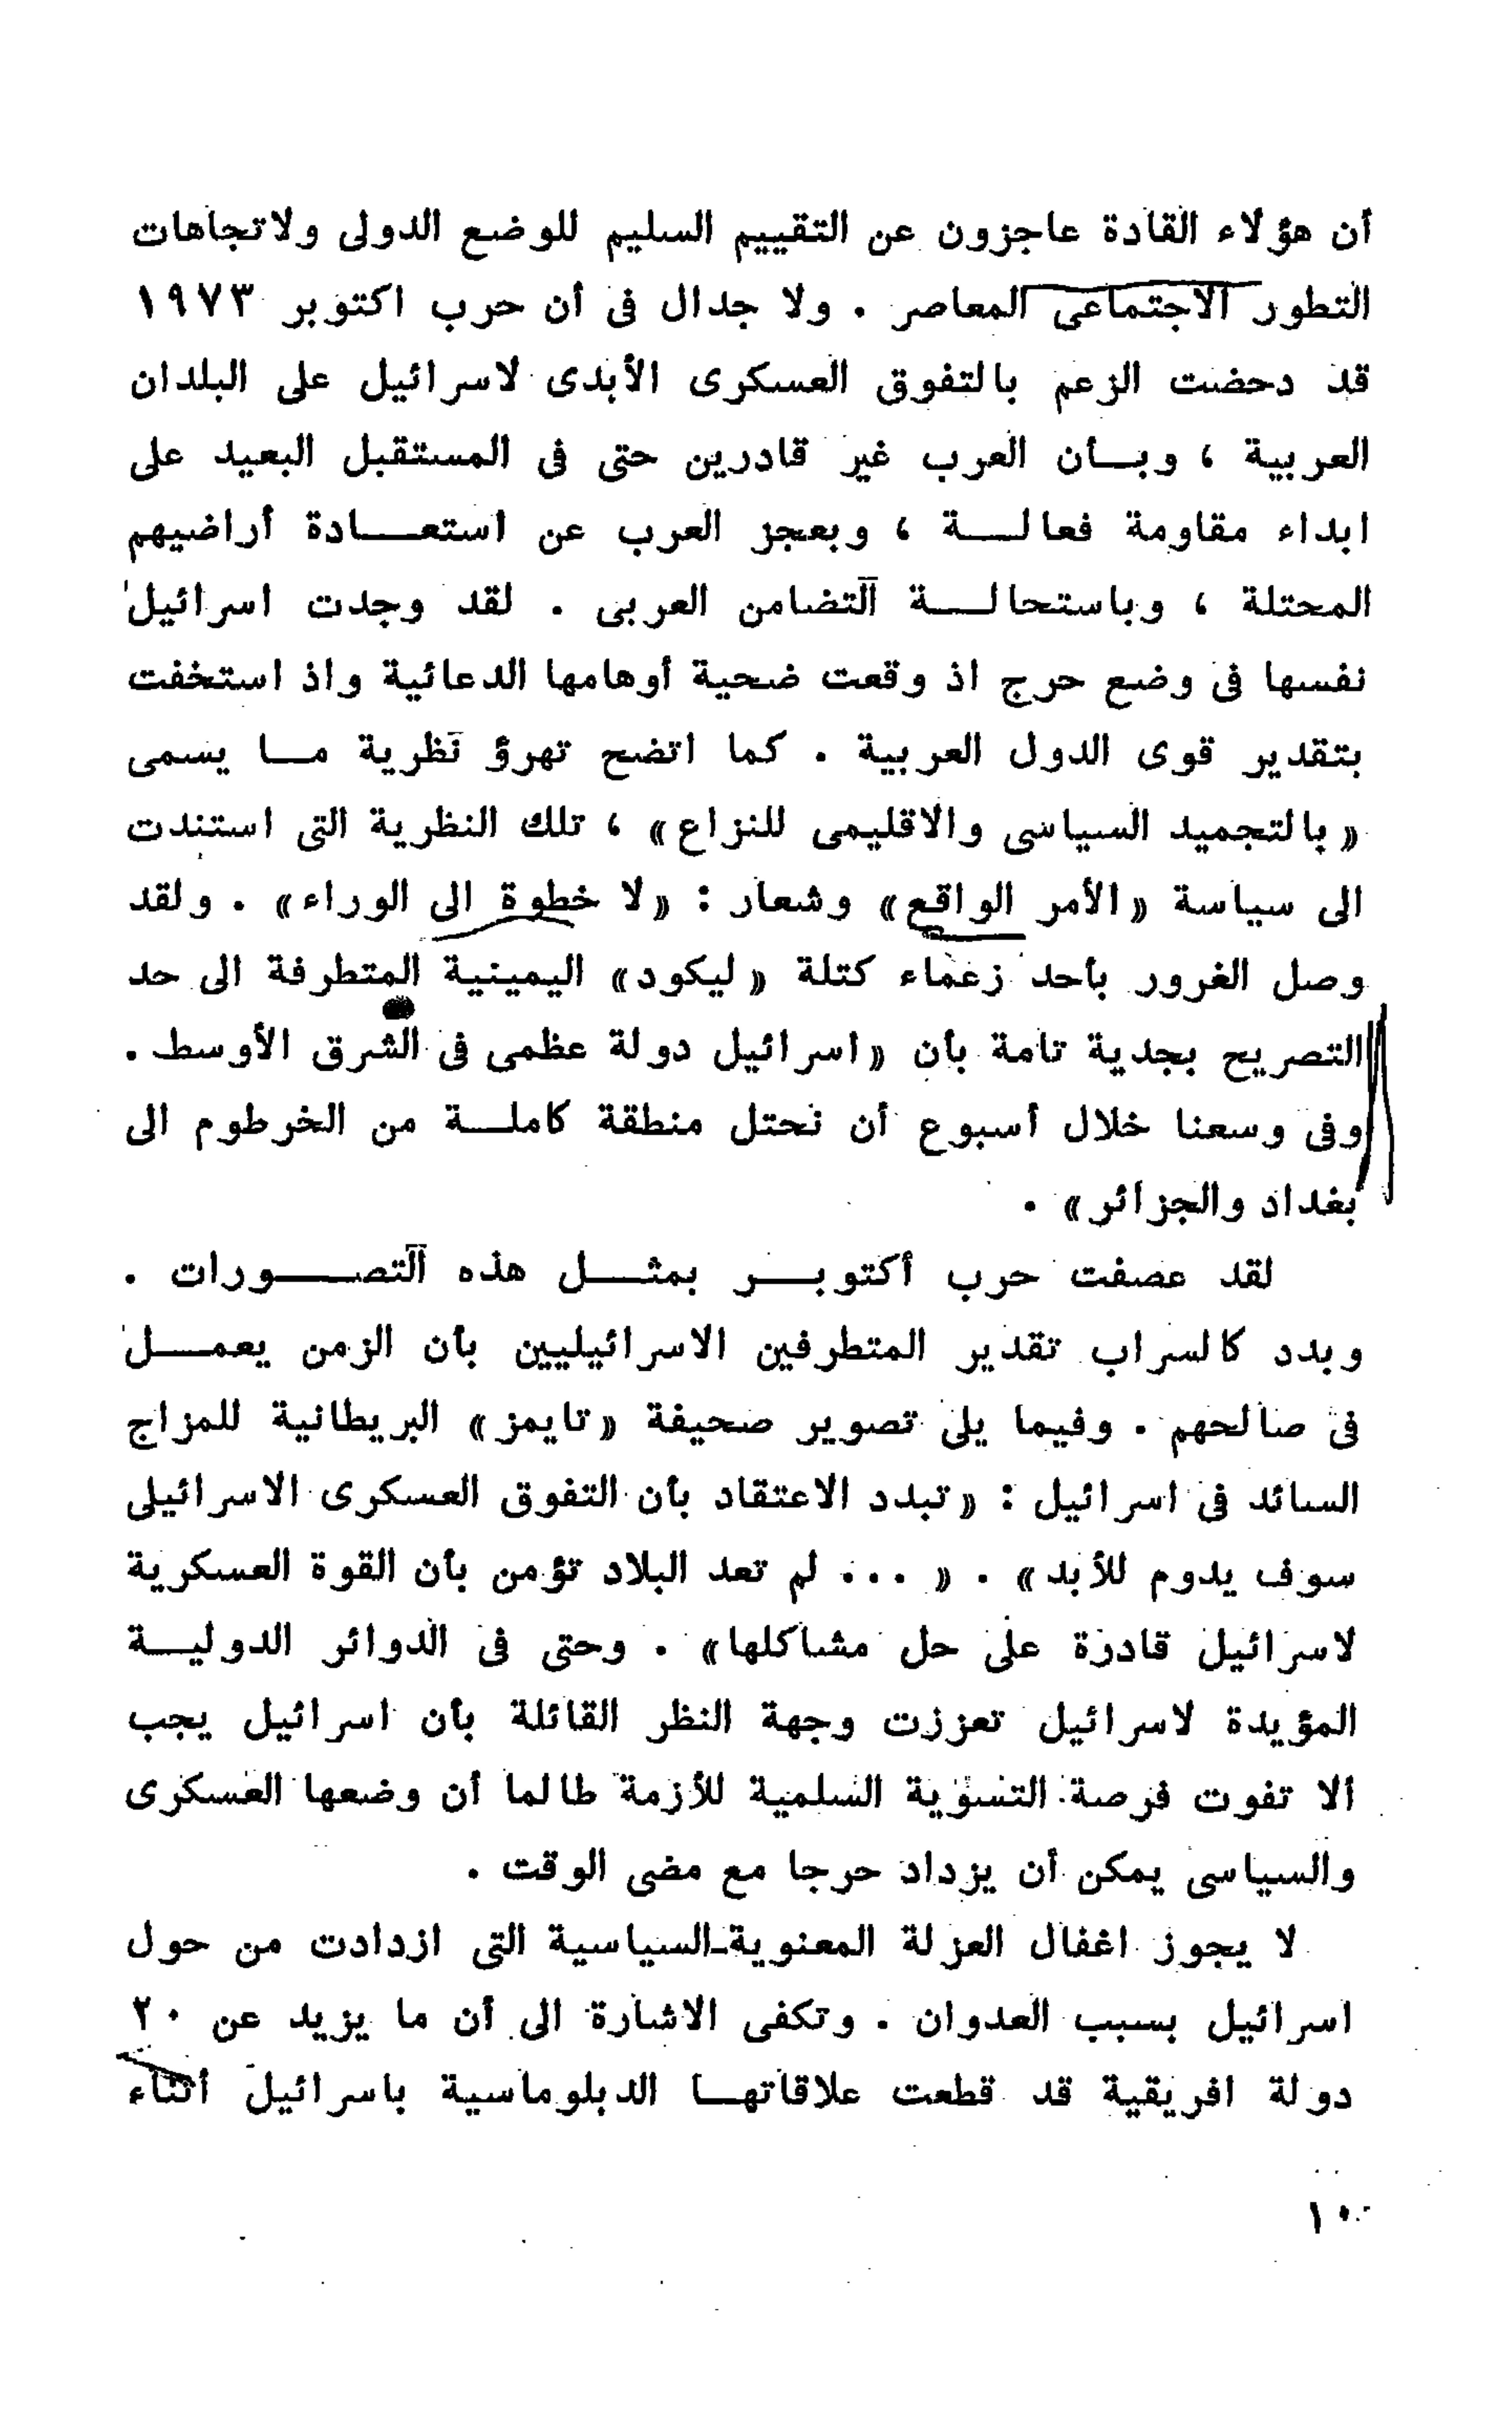 أن هؤلاء القادة عاجزون عن التقييم السليم للوضع الدولى ولاتجاهات
التطور الاجتماعى المعاصر . ولا جدال فى أن حرب اكتوبر ١٩٧٣
قد دحضت الزعم بالتفوق العسكرى الأبدى لاسرائيل على البلدان
العربية ، وبـأن العرب غير قادرين حتى فى المستقبل البعيد على
ابداء مقاومة فعالـــة ، وبعجز العرب عن استعـــادة أراضيهم
المحتلة ، وباستحالـــة التضامن العربى . لقد وجدت اسرائيل
نفسها فى وضع حرج اذ وقعت ضحية أوهامها الدعائية واذ استخفت
بتقدير قوى الدول العربية . كما اتضح تهرؤ نظرية مـا يسمى
«بالتجميد السياسى والاقليمى للنزاع» ، تلك النظرية التى استندت
الى سياسة «الأمر الواقع» وشعار : «لا خطوة الى الوراء» . ولقد
وصل الغرور بأحد زعماء كتلة «ليكود» اليمينية المتطرفة الى حد
التصريح بجدية تامة بأن «اسرائيل دولة عظمى فى الشرق الأوسط .
وفى وسعنا خلال أسبوع أن نحتل منطقة كاملـــة من الخرطوم الى
بغداد والجزائر» .
لقد عصفت حرب أكتوبـــر بمثـــل هذه التصـــورات .
وبدد كالسراب تقدير المتطرفين الاسرائيليين بأن الزمن يعمـــل
فى صالحهم . وفيما يلى تصوير صحيفة «تايمز» البريطانية للمزاج
السائد فى اسرائيل : «تبدد الاعتقاد بأن التفوق العسكرى الاسرائيلى
سوف يدوم للأبد» . «... لم تعد البلاد تؤمن بأن القوة العسكرية
لاسرائيل قادرة على حل مشاكلها» . وحتى فى الدوائر الدوليـــة
المؤيدة لاسرائيل تعززت وجهة النظر القائلة بأن اسرائيل يجب
ألا تفوت فرصة التسوية السلمية للأزمة طالما أن وضعها العسكرى
والسياسى يمكن أن يزداد حرجا مع مضى الوقت .
لا يجوز اغفال العزلة المعنوية-السياسية التى ازدادت من حول
اسرائيل بسبب العدوان . وتكفى الاشارة الى أن ما يزيد عن ٢٠
دولة افريقية قد قطعت علاقاتهـا الدبلوماسية باسرائيل أثناء
١٠